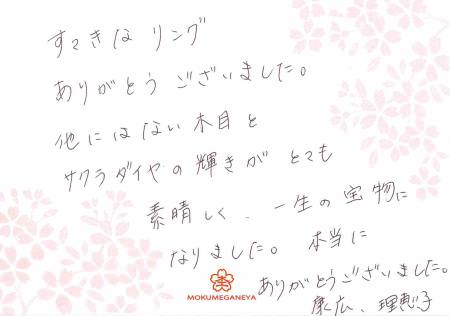 すてきな リング
ありがとう ございました。
他にはない木目と
サクラダイヤの輝きが とても
素晴しく、一生の宝物に
なりました。 本当に
ありがとうございました。
康広、理恵子
MOKUMEGANEYA